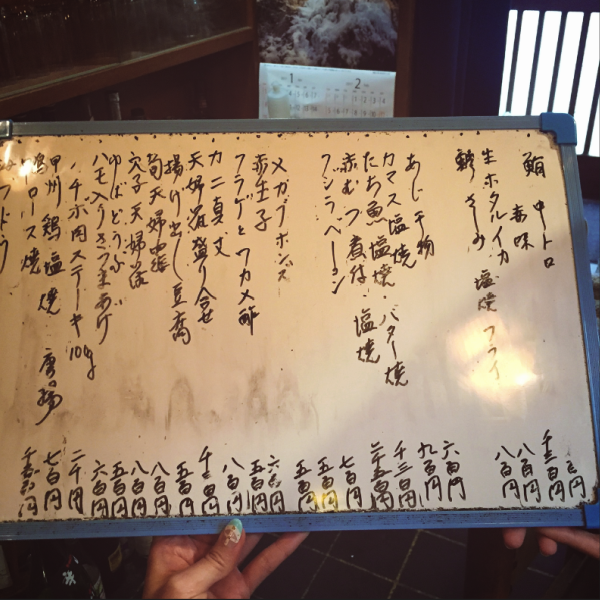 鮪 中トロ
赤味
生ホタルイカ
鯵さしみ 塩焼 フライ
あじ干物
カマス塩焼
たち魚塩焼・バター焼
赤むつ煮付・塩焼
メカブポンズ
クラゲとワカメ酢
カニ真丈
天婦羅盛り合せ
揚げ出し豆腐
筍天婦羅
穴子天婦羅
ゆばどうふ
ハモ入りさつまあげ
肉ステーキ 100g
甲州鶏塩焼 唐揚
鴨ロース焼
千三百円
八百円
八百円
六百円
九百円
千三百円
二千五百円
七百円
五百円
五百円
六百円
五百円
八百円
千二百円
五百円
八百円
八百円
五百円
六百円
二千円
七百円
1
2